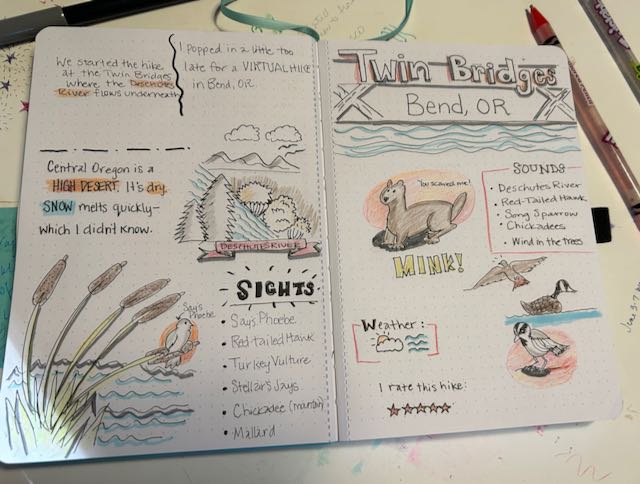 We started the hike
at the Twin Bridges
where the Deschutes
River flows underneath
I popped in a little too
late for a VIRTUAL HIKE
in Bend, OR.
Central Oregon is a
HIGH DESERT. It's dry.
SNOW melts quickly-
which I didn't know.
DESCHUTES RIVER
Says
Phoebe
SIGHTS
• Says Phoebe
• Red-tailed Hawk
• Turkey Vulture
• Stellar's Jays
• Chickadee (mountain)
• Mallard
Twin Bridges
Bend, OR
You scared me!
MINK!
SOUNDS
• Deschutes River
• Red-Tailed Hawk
• Song Sparrow
• Chickadees
• Wind in the trees
Weather:
I rate this hike: